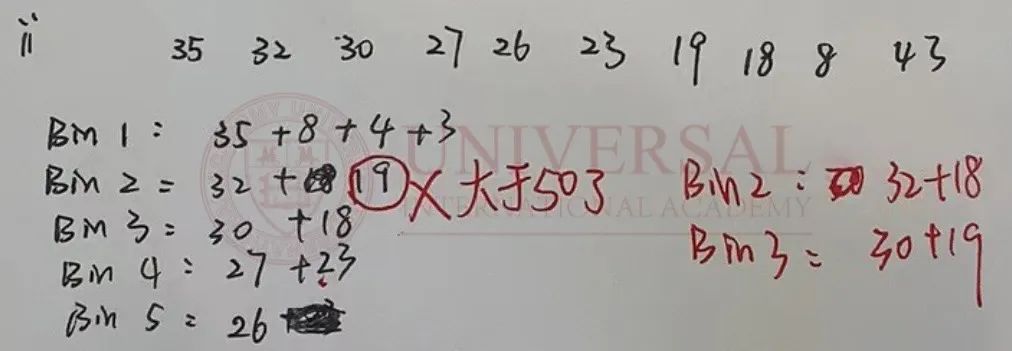 ii 35 32 30 27 26 23 19 18 8 4 3
Bin 1: 35 + 8 + 4 + 3
Bin 2 = 32 + 19 × 大于50了 Bin 2: 32+18
Bin 3 = 30 + 18 Bin 3 = 30+19
Bin 4: 27 + 23
Bin 5 = 26
UNIVERSAL
INTERNATIONAL ACADEMY